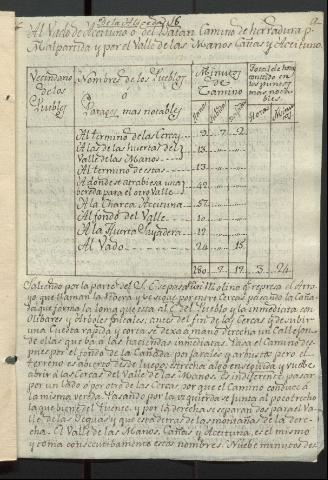 De la Alyceda 16
Al Vado de Aceituno o del Batan Camino de herradura p.
Malpartida y por el Valle de las Manos Cañas y Aceituno
Vecindario de los Pueblos
Nombre de los Pueblos ó Parages mas notables
Minutos de Camino
Total de
Horas Minutos
Al termino de las Cercas 3 7 2
A las de las huertas del Valle de las Manos 13
Al termino de estas 13
Adonde se atrabiesa una vereda para el otro Valle 42
A la Charca Aceituna 57
Al fondo del Valle 10
A la Huerta 12
Al Vado 24 15
180 7 17 3 24
Saliendo por la parte del se pasa un Molino q.e represa el Arro-
yo que llaman la Ribera y se sigue por entre Cercas pasando la Caña-
da que forma la loma que esta al E. del Pueblo y la inmediata con
Olibares y Arboles frutales, antes del fin de las Cercas q.e de subir
una Cuesta rapida y corta se dexa a mano derecha un Callejon
de ellas que ba a las haciendas inmediatas. Pasa el Camino des-
pues por el fondo de la Cañada; por jarales y arbustos pero el
terreno es abierto desde luego; derecha algo en seguida y vuelbe
abrir a las Cercas del Valle de las Manos. Es indiferente pasar
por un lado o por otro de las Cercas, por que el Camino conduce a
la misma vereda. Pasando por la izquierda se junta al poco trecho
la que biene del Puente, y por la derecha se separan dos para el Va-
lle de las Degias y que es
cha. El Valle de las Manos, Cañas y Aceituna, es el mismo
y toma consecutibamente esos nombres. Nuebe minutos des